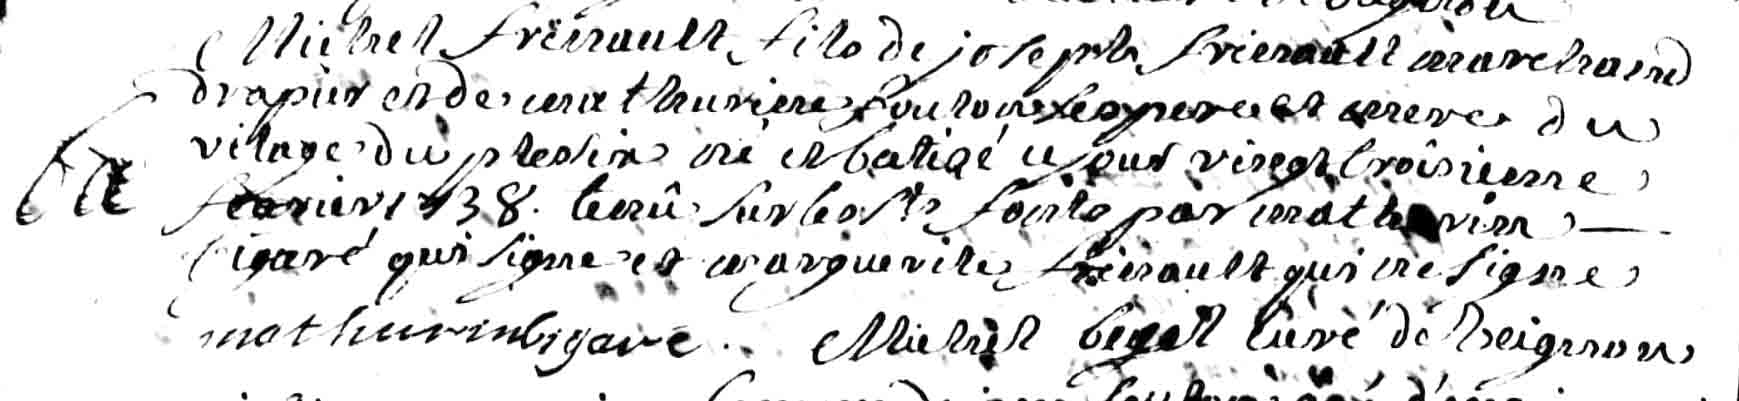 Michel frënault fils de joseph frienault marchand
drapier et de mathurine foulon ses pere et mere du
vilage du plesix né et batisé ce jour vingt troisieme
fevrier 1738. tenû sur les sts fonts par mathurin —
bigaré qui signe et marguerite frënault qui ne signe
mathurin bigaré. Michel begat curé de beignon